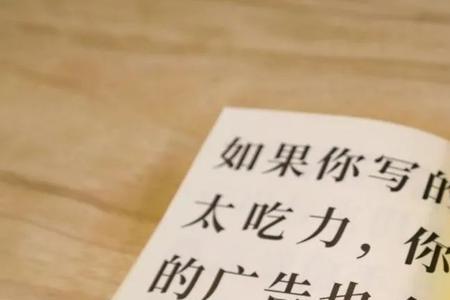 如果你写的
太吃力，你
的广告也